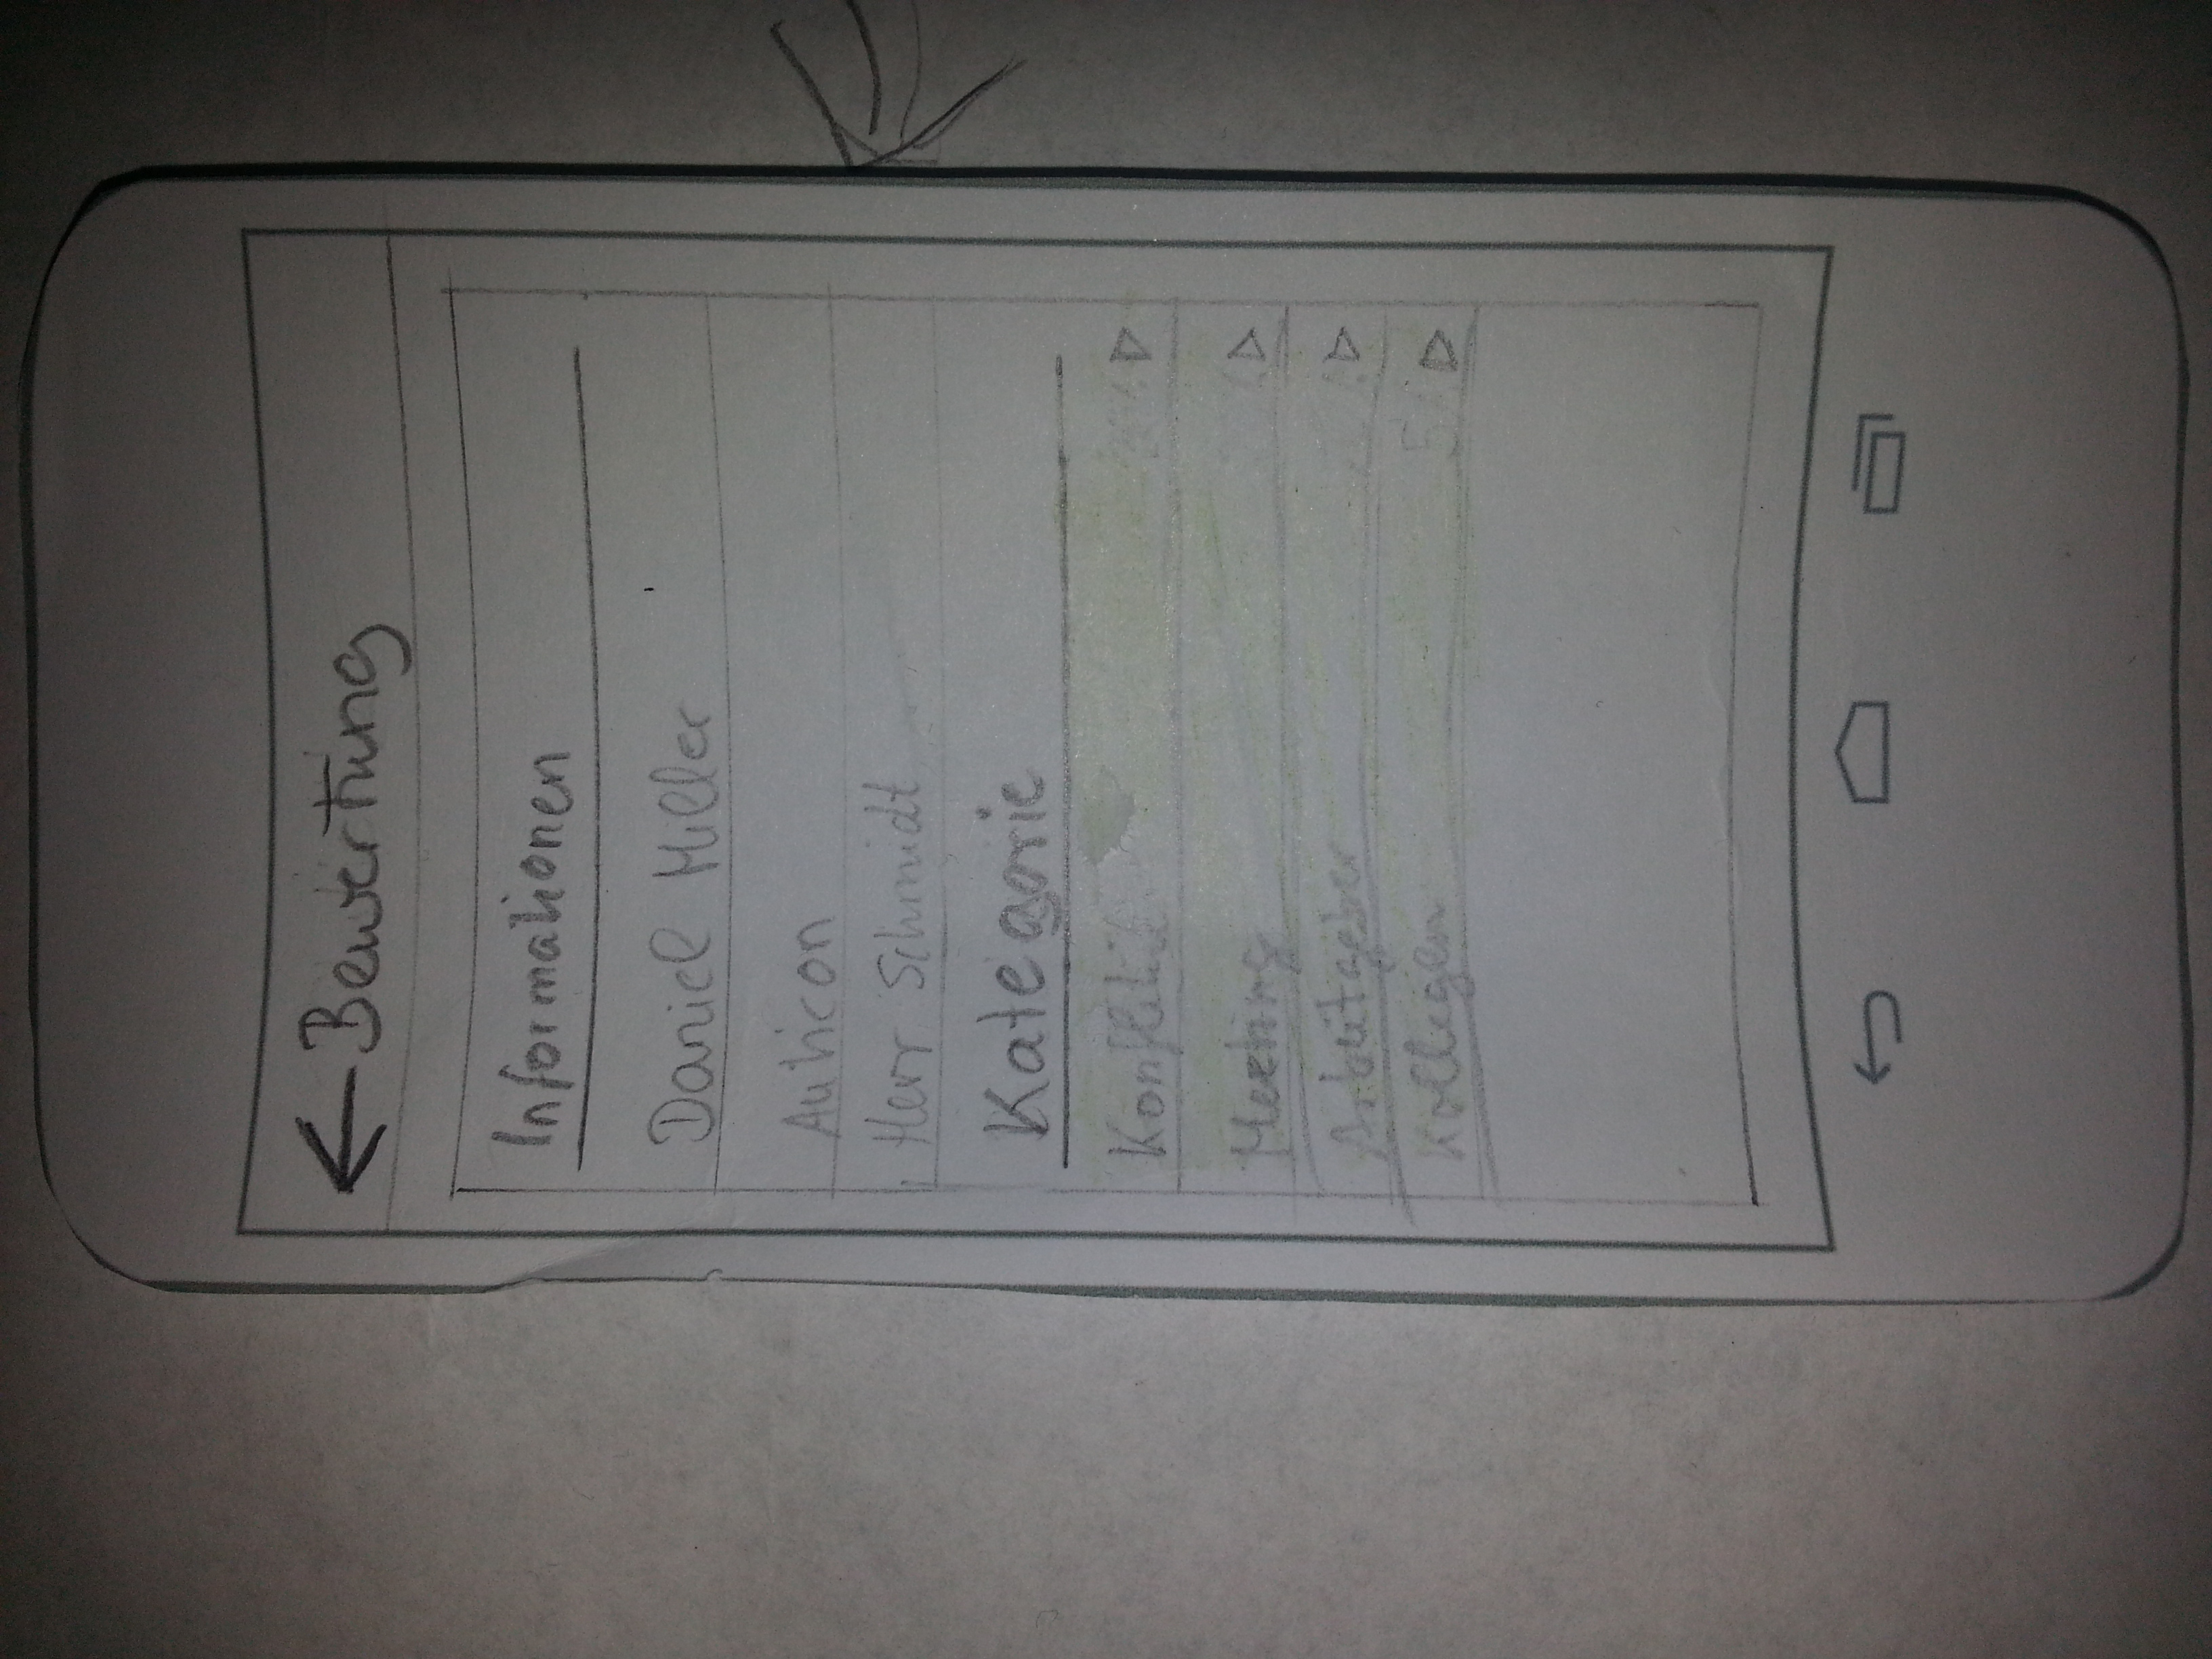 Bewertung
Informationen
Daniel Miller
Auticon
Herr Schmidt
Kategorie
Konflikt
Meeting
Arbeitgeber
Kollegen